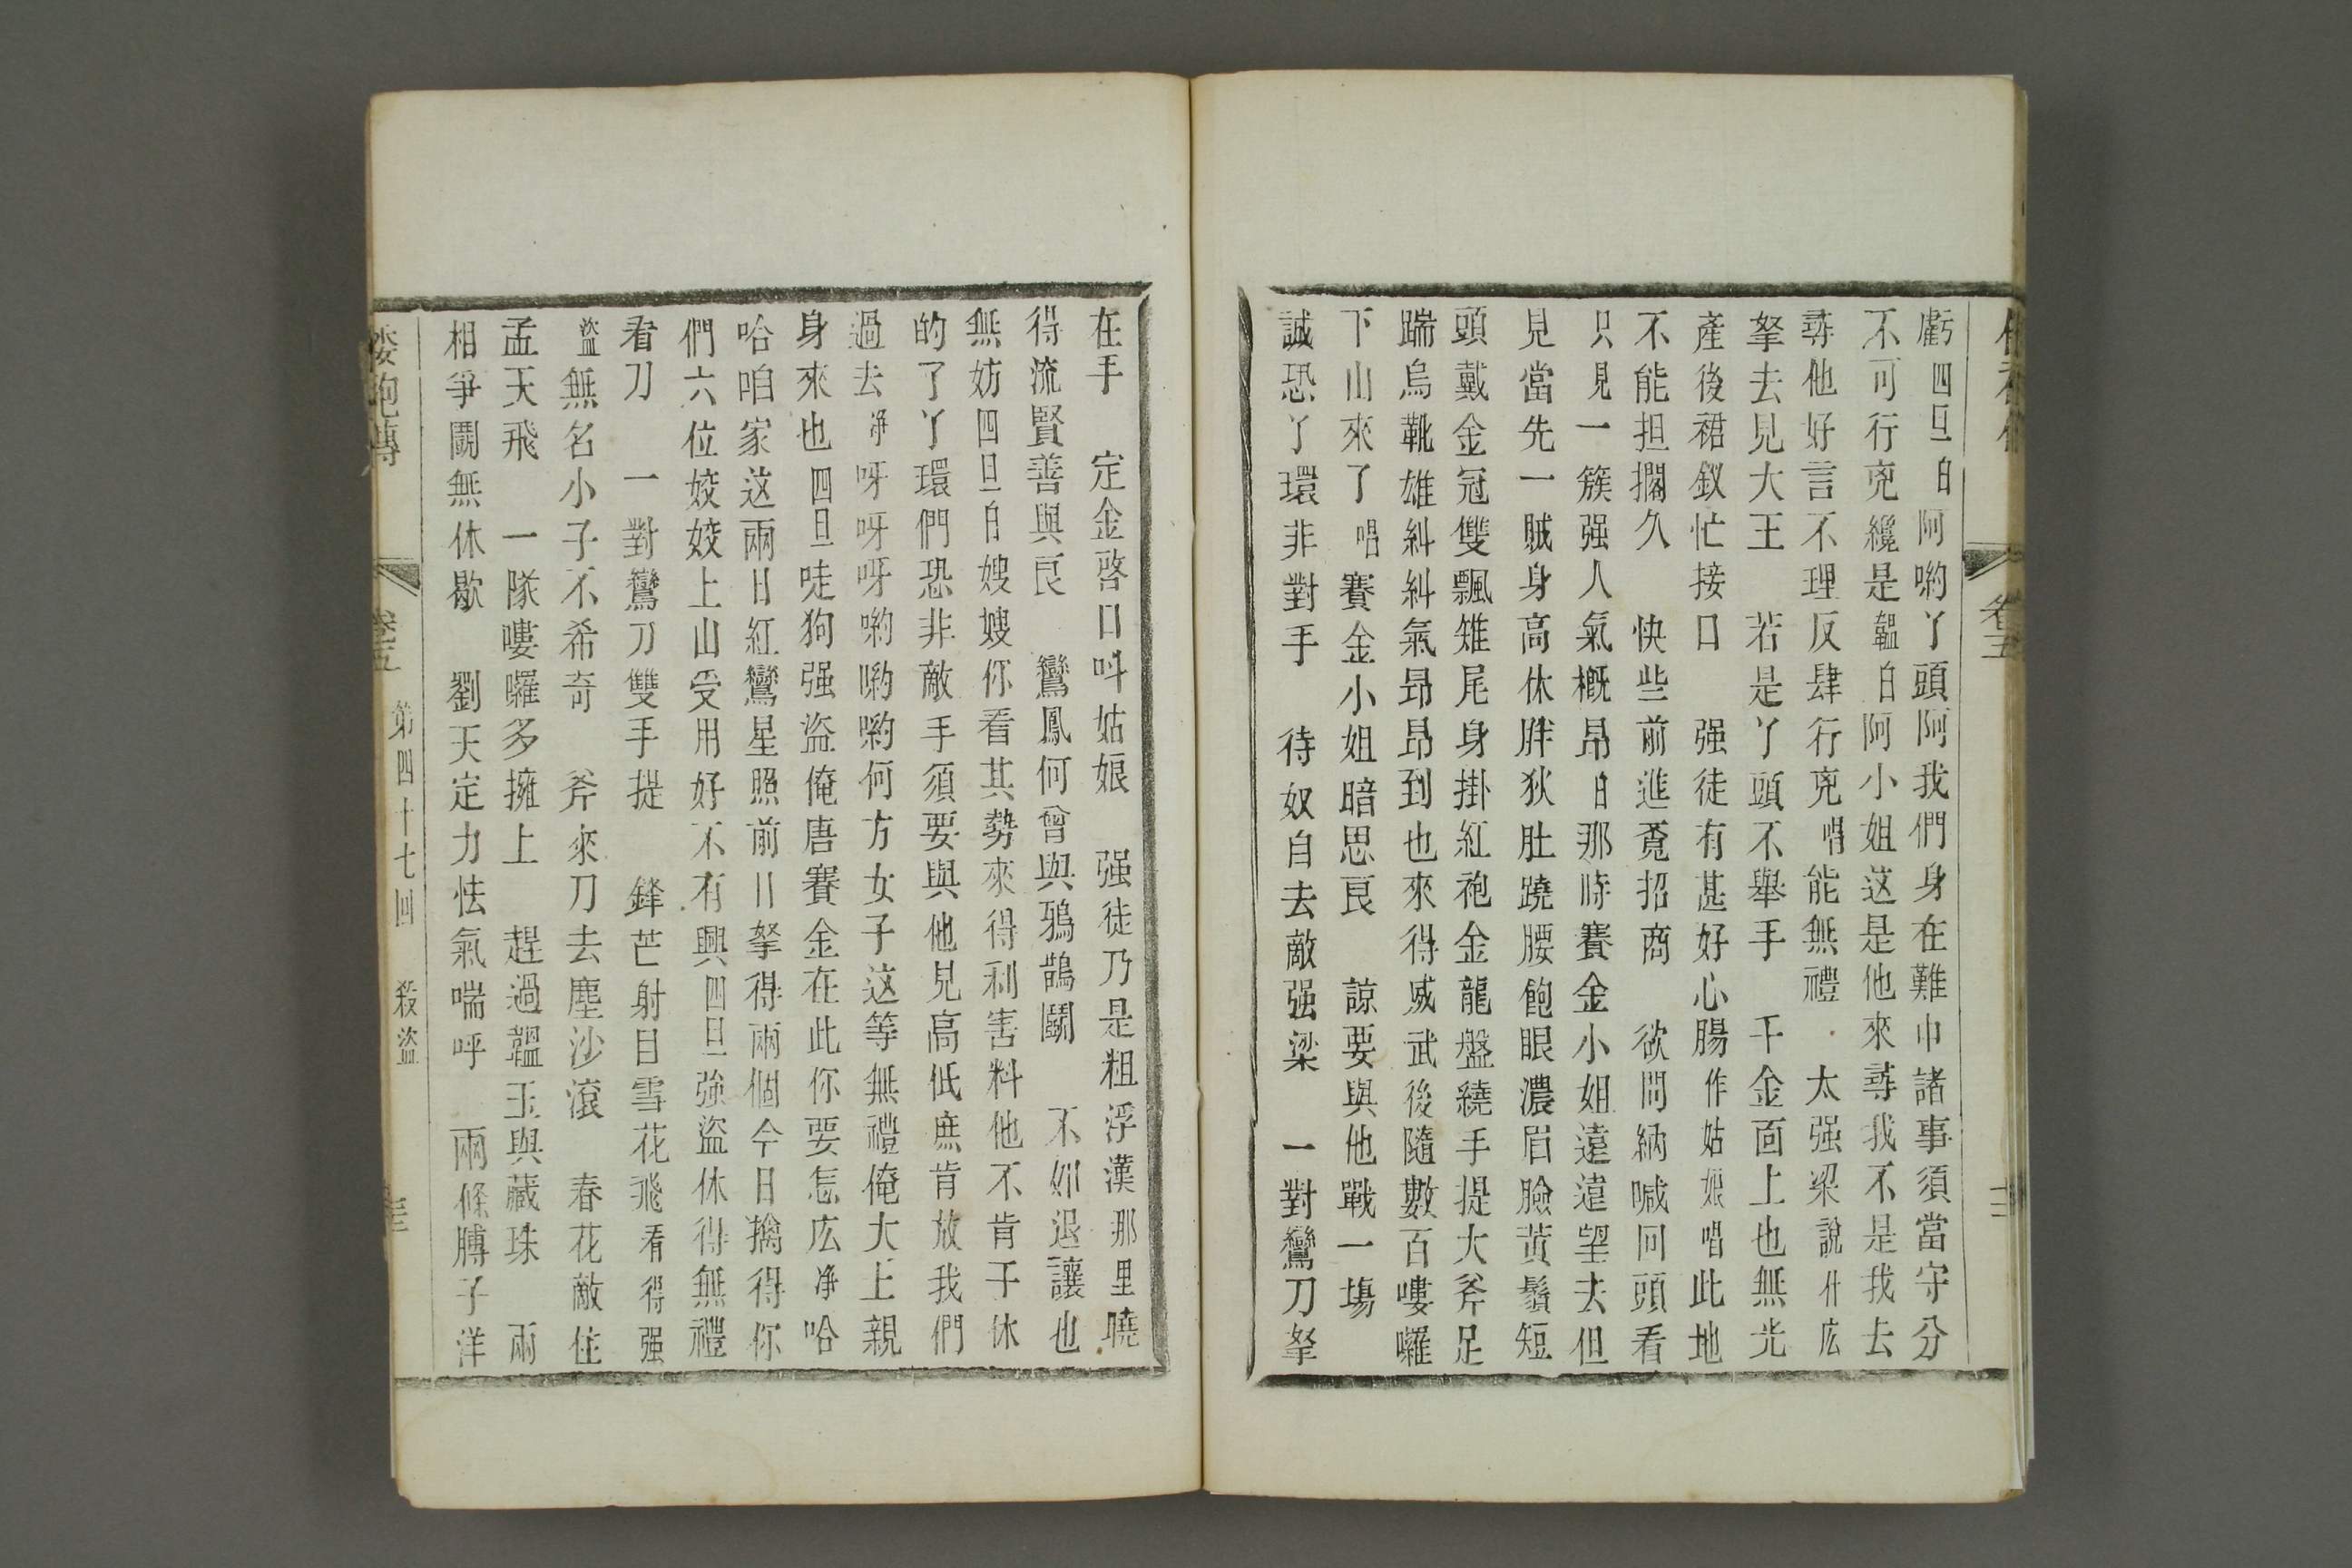 虧四旦白阿喲丫頭阿我們身在難巾諸事須當守分
不可行兇纔是韞白阿小姐这是他來尋我不是我去
尋他好言不理反肆行兇唱能無禮太强梁說什広
拏去見大王若是丫頭不舉手千金面上也無光
產後裙釵忙接口强徒有甚好心腸作姑娘唱此地
不能担擱久快些前進覔招商欲問納喊回頭看
只見一簇强人氣概昂白那時賽金小姐遠遠望去但
見當先一賊身高休胖狄肚蹺腰飽眼濃眉臉黃鬚短
頭戴金冠雙飄雉尾身掛紅袍金龍盤繞手提大斧足
踹烏靴雄糾糾氣昂昂到也來得威武後隨數百嘍囉
下山來了唱賽金小姐暗思良諒要與他戰一塲
誠恐丫環非對手待奴自去敵强梁一對鸞刀拏
在手定金啓口呌姑娘强徒乃是粗浮漢那里曉
得流賢善與良鸞鳳何曾與鴉鵲鬭不如退讓也
無妨四旦白嫂嫂你看其勢來得利害料他不肯干休
的了丫環們恐非敵手須要與他見高低庶肯放我們
過去净呀呀呀喲喲喲何方女子这等無禮俺大上親
身來也四旦哇狗强盜俺唐賽金在此你要怎広净哈
哈咱家这兩日紅鸞星照前日拏得兩個今日擒得你
們六位姣姣上山受用好不有興四旦強盜休得無禮
看刀一對鸞刀雙手提鋒芒射目雪花飛看得强
盜無名小子不希奇斧來刀去塵沙滾春花敵住
孟天飛一隊嘍囉多擁上趕過韞玉與藏珠兩
相爭鬭無休歇劉天定力怯氣喘呼兩條膊子洋
卷五第四十七回殺盜